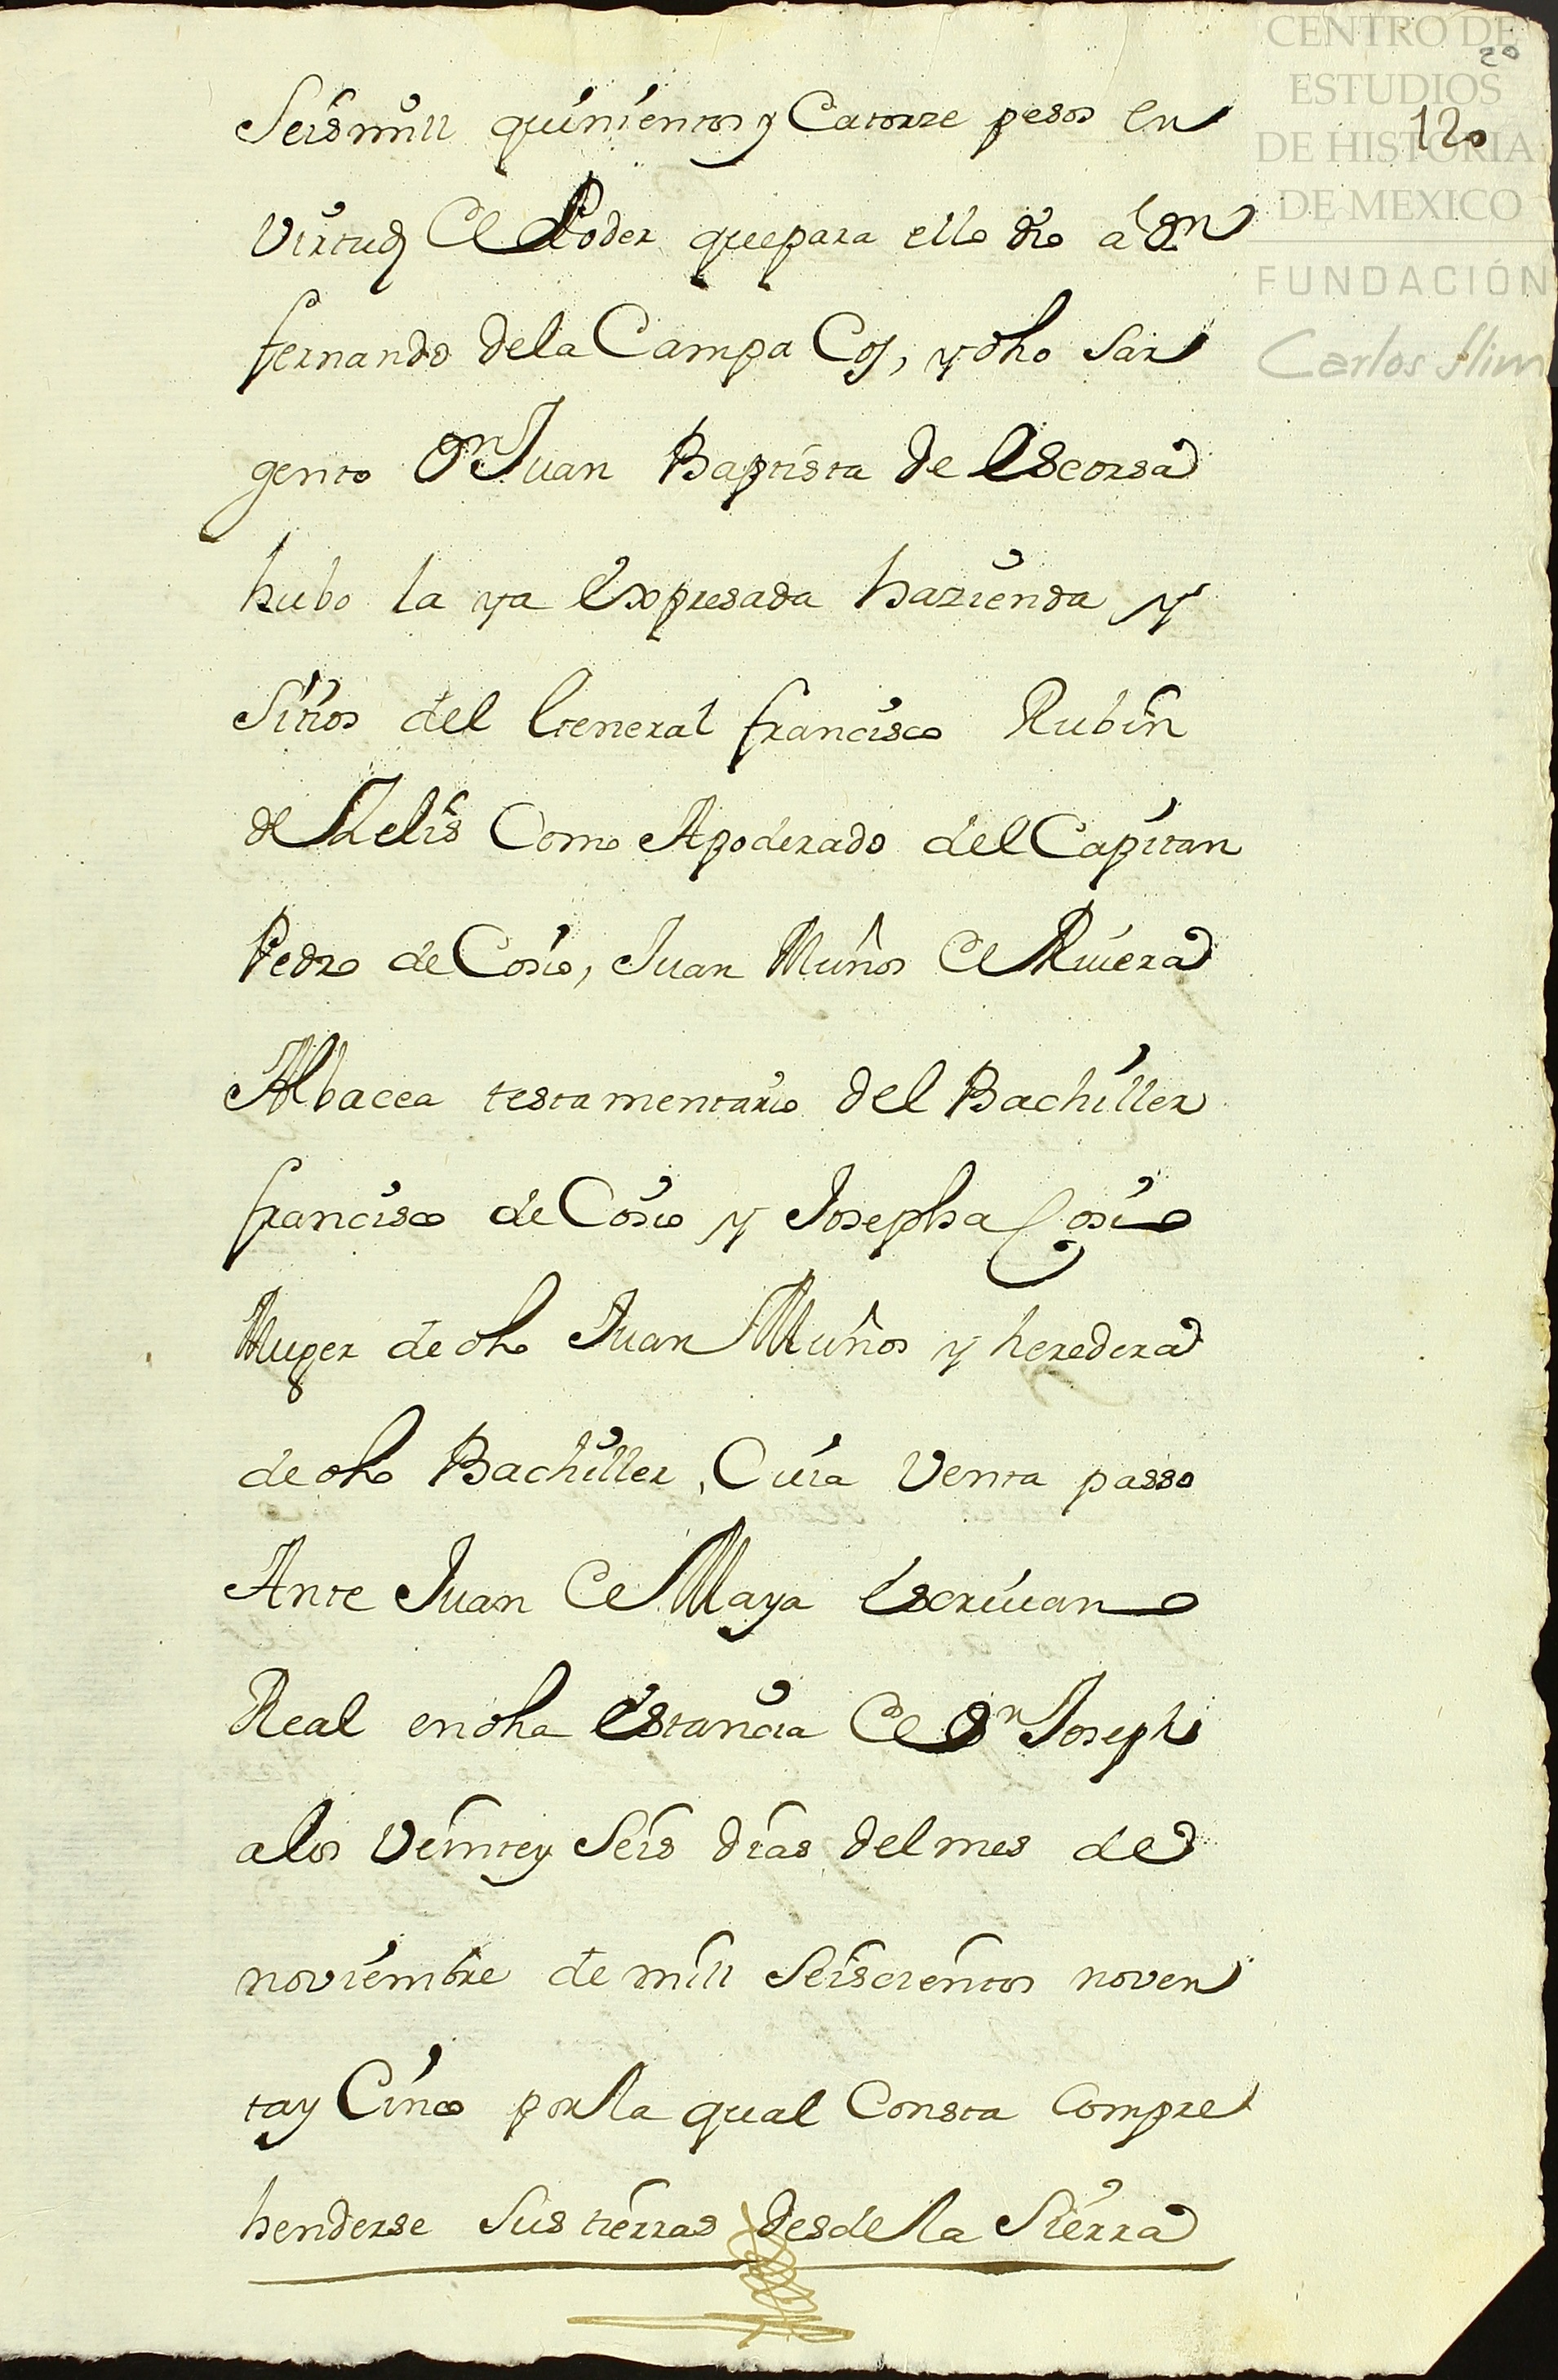 CENTRO DE
ESTUDIOS
DE HISTORIA
DE MEXICO
FUNDACIÓN
Carlos Slim
20
120
Seismill quinientos y Catorze pesos en
Virtud de Poder quepara ello dio a Dn
fernando dela Campa Cos, y dho Sar
gento Dn Juan Baptista de Escorsa
hubo la ya Expresada hazienda y
Sitios del General francisco Rubin
de Zelis Como Apoderado del Capitan
Pedro de Cosio, Juan Muños de Riuera
Albacea testamentario del Bachiller
francisco de Cosio y Josepha Cosio
Muger de dho Juan Muños y heredera
de dho Bachiller, Cuia Venta passo
Ante Juan de Maya Escriuano
Real en dha Estancia de Sn Joseph
a los Veintey Seis dias del mes de
noviembre de mill Seiscientos noven
tay Cinco por la qual Consta Compre
henderse Sus tierras desde la Sierra